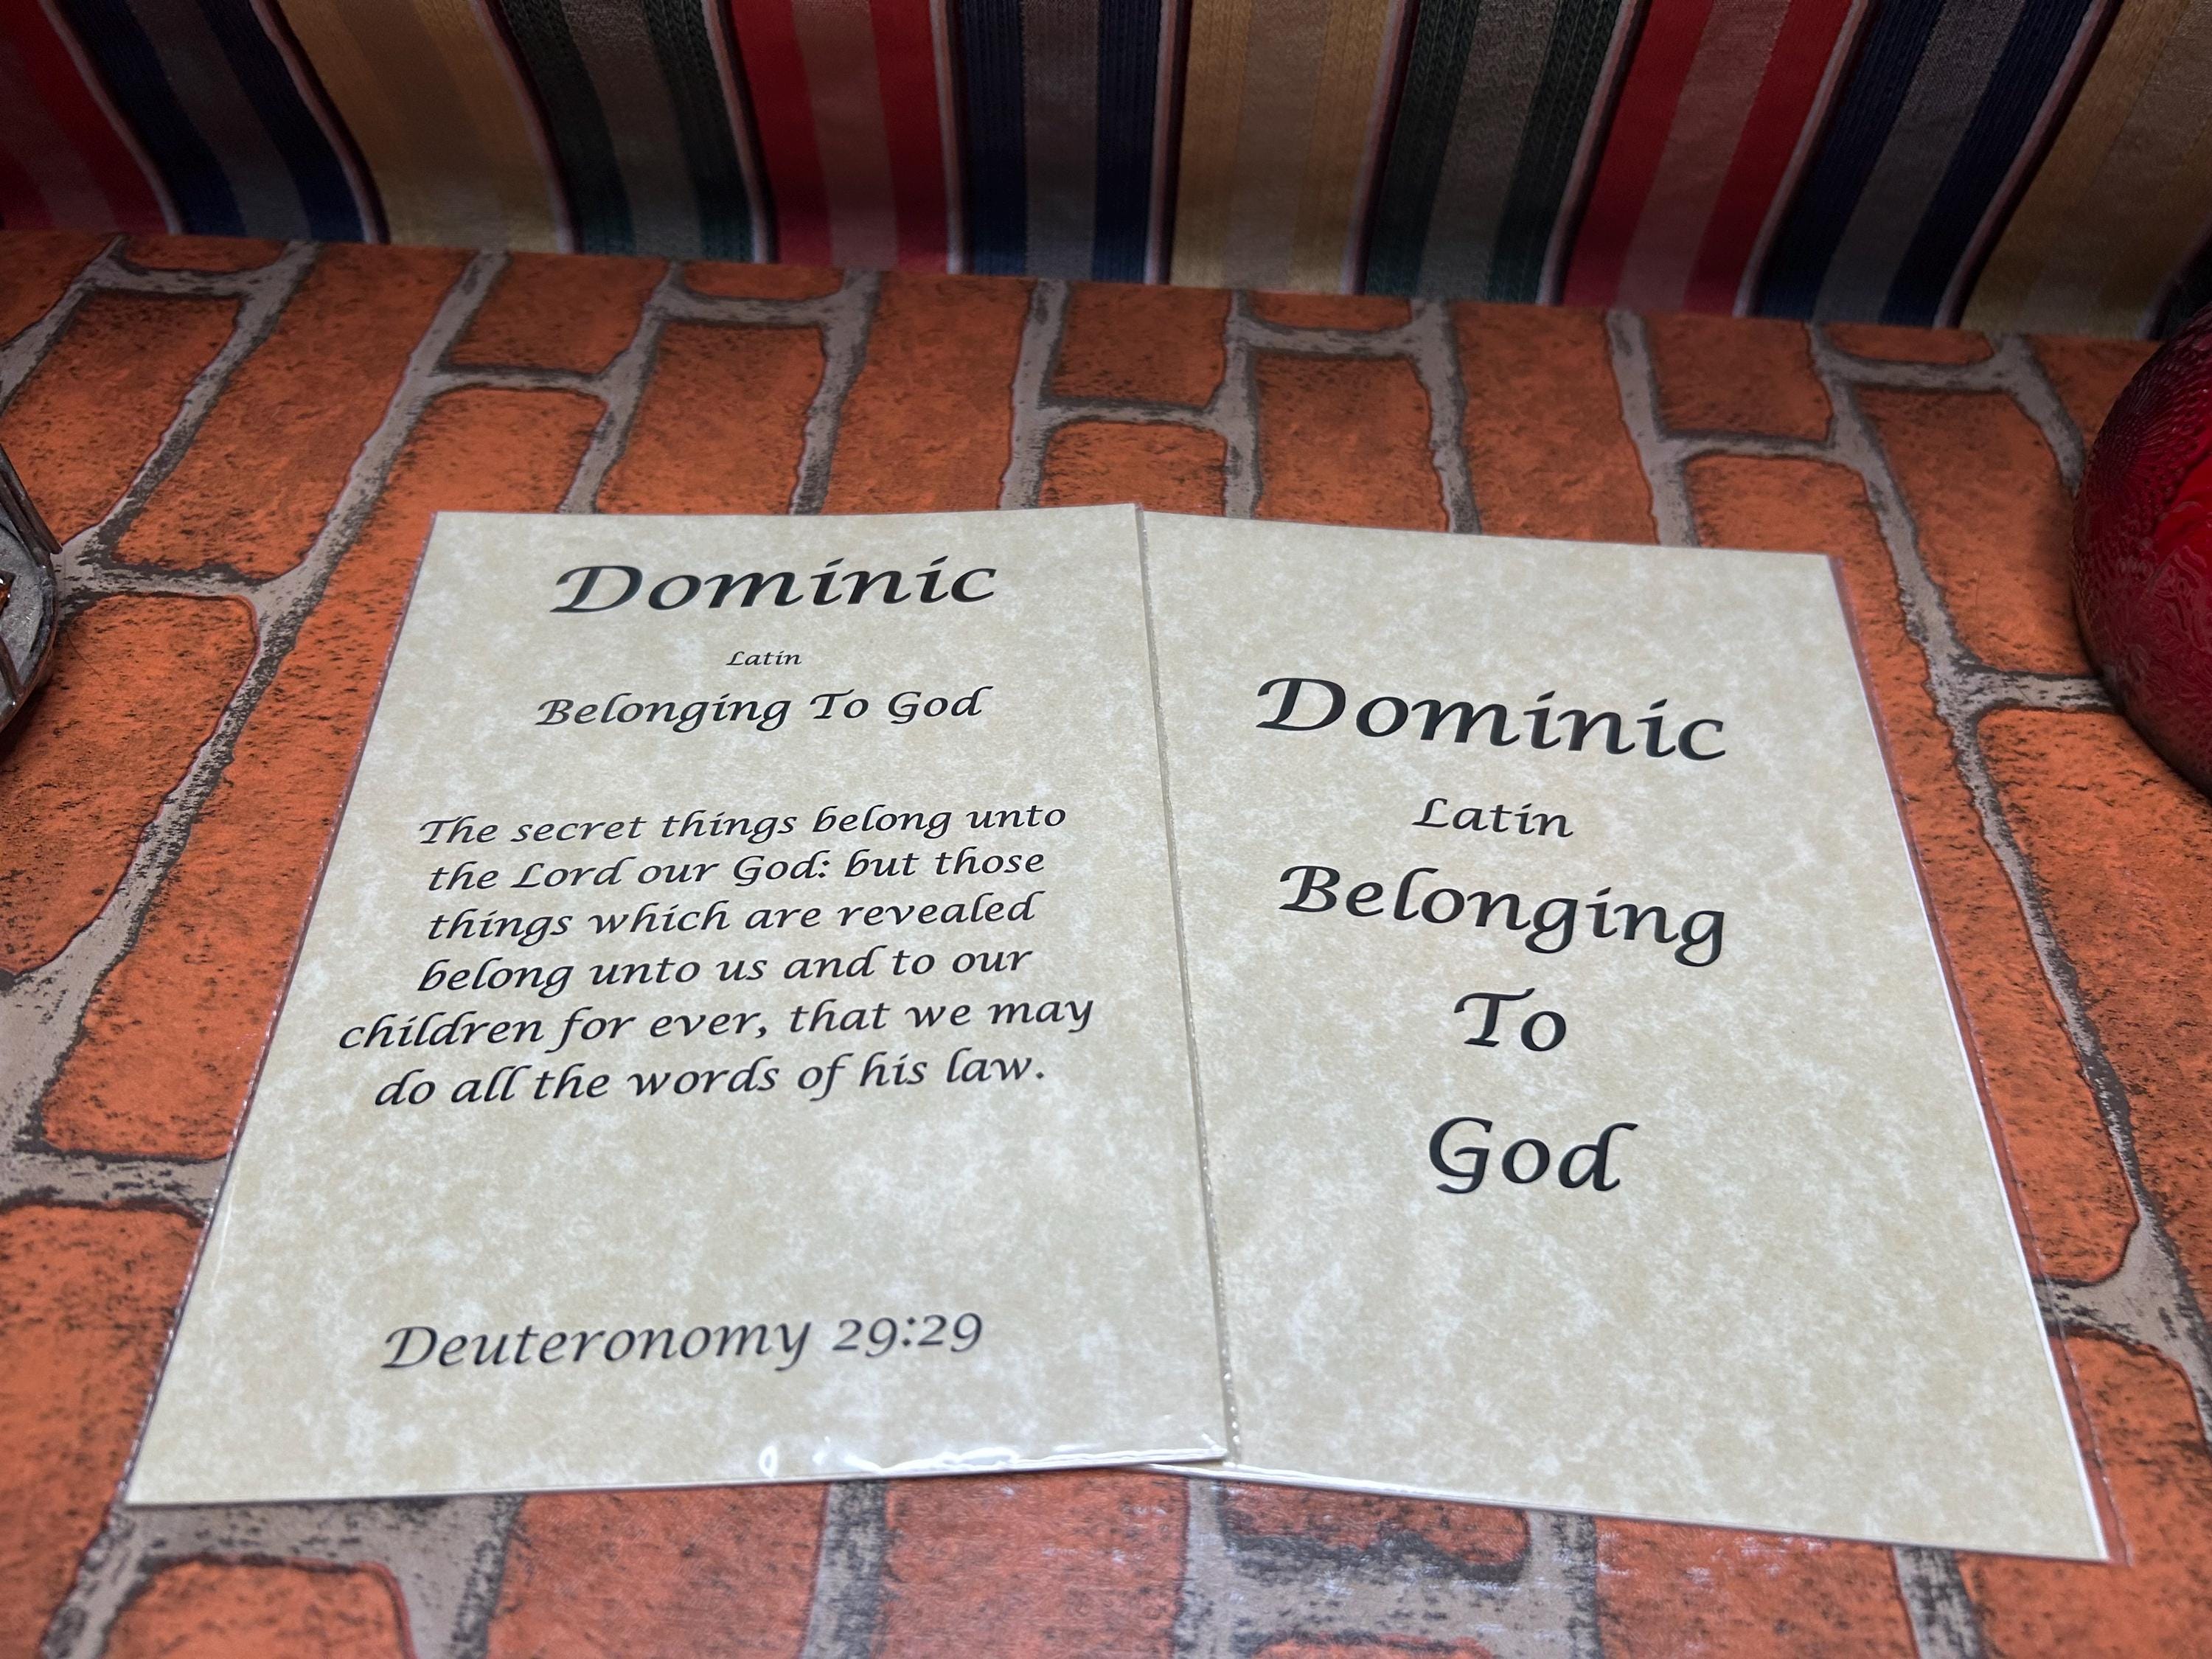 Dominic
Latin
Belonging To God
The secret things belong unto
the Lord our God: but those
things which are revealed
belong unto us and to our
children for ever, that we may
do all the words of his law.
Deuteronomy 29:29
Dominic
Latin
Belonging
To
God